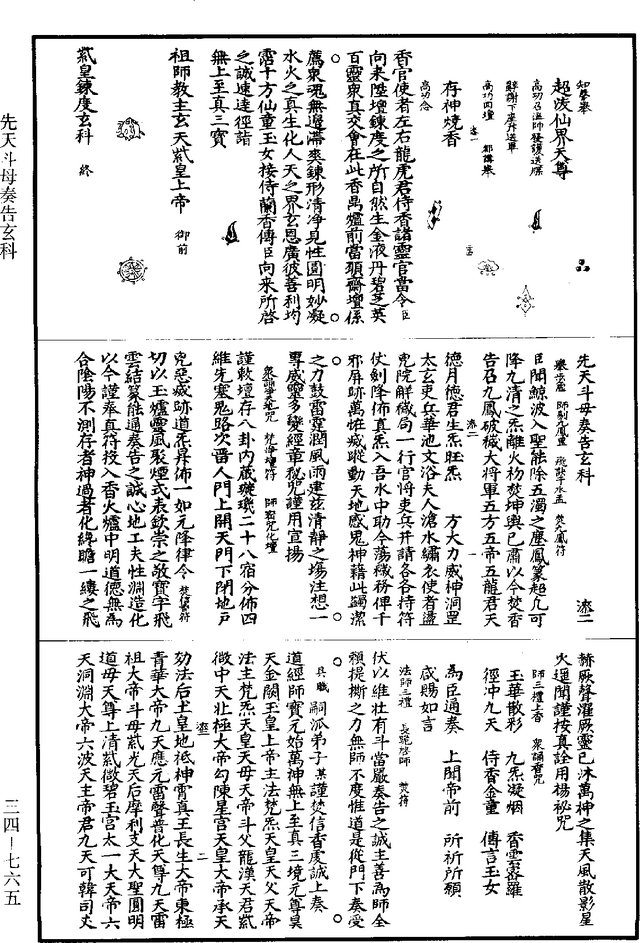 先天斗母奏告玄科
超淩仙界天尊
高功召溫帥發護送牒
高功回壇 都講舉
存神燒香
高功念
香官使者左右龍虎君侍香諸靈官當令臣
向来陞壇鍊度之所自然生金液丹碧芝英
百靈衆真交會在此香爐前當願齋壇係
薦衆魂無邊滯爽鍊形清净見性圓明妙凝
水火之真生化人天之界玄恩廣彼善利均
霑十方仙童玉女接侍蘭香傳臣向来所啓
之誠速達徑詣
無上至真三寳
祖師教主玄天紫皇上帝 御前
紫皇鍊度玄科 終
先天斗母奏告玄科
臣聞鯨波入聖能除五濁之塵鳳篆超凡可
降九清之炁離火杨焚坤輿已肅以今焚香
告召九鳳破穢大將軍五方五帝五龍君天
德月德君生炁旺炁 方大力威神洞罡
太玄吏兵華池文浴夫人滄水繡衣使者盪
兇院解穢局一行官將吏兵并請各各持符
仗劍降佈真炁入吾水中助令蕩穢務俾千
邪屏跡萬怪寂蹤動天地感鬼神藉此蠲潔
之力鼓雷霆潤風雨建兹清靜之場注想一
尊威靈多變經章秘咒謹用宣揚
謹敕壇存八卦内藏璇璣二十八宿分佈四
維先塞鬼路次晋人門上開天門下閉地戸
兇惡歛跡道炁昇佈一如元降律令 焚符
切以玉爐靈風聚煙式表欽崇之敬寳字飛
雲結篆能通奏告之誠心地工夫性淵造化
以今謹奉真符投入香火爐中明道德無為
合陰陽不測存者神過者化終瞻一縷之飛
赫厥聲濯厥靈已沐萬神之集天風散影星
火遥聞謹按真詮用揚祕咒
師三禮上香 衆誦香咒
玉華散彩 九炁凝烟 香雲密羅
徑冲九天 侍香金童 傳言玉女
為臣通奏 上聞帝前 所祈所願
咸賜如言
法師三禮 長跪啓師 焚符
伏以維壮有斗當嚴奏告之誠主善為師全
頼提撕之力無師不度惟道是從門下奏受
具職 嗣派弟子某謹焚信香虔誠上奏
道經師寳元始萬神無上至真三境元尊昊
天金闕玉皇上帝主法梵炁天皇天父天帝
法主梵炁天皇天母天帝斗父龍漢天君紫
微中天北極大帝勾陳星宫天皇大帝承天
効法后土皇地祇神霄真王長生大帝東極
青華大帝九天應元雷聲普化天尊九天雷
祖大帝斗母紫光天后摩利支天大聖圓明
道母天尊上清紫微碧玉宫太一大天帝六
天洞淵大帝六波天主帝君九天可韓司丈
三四—七六五